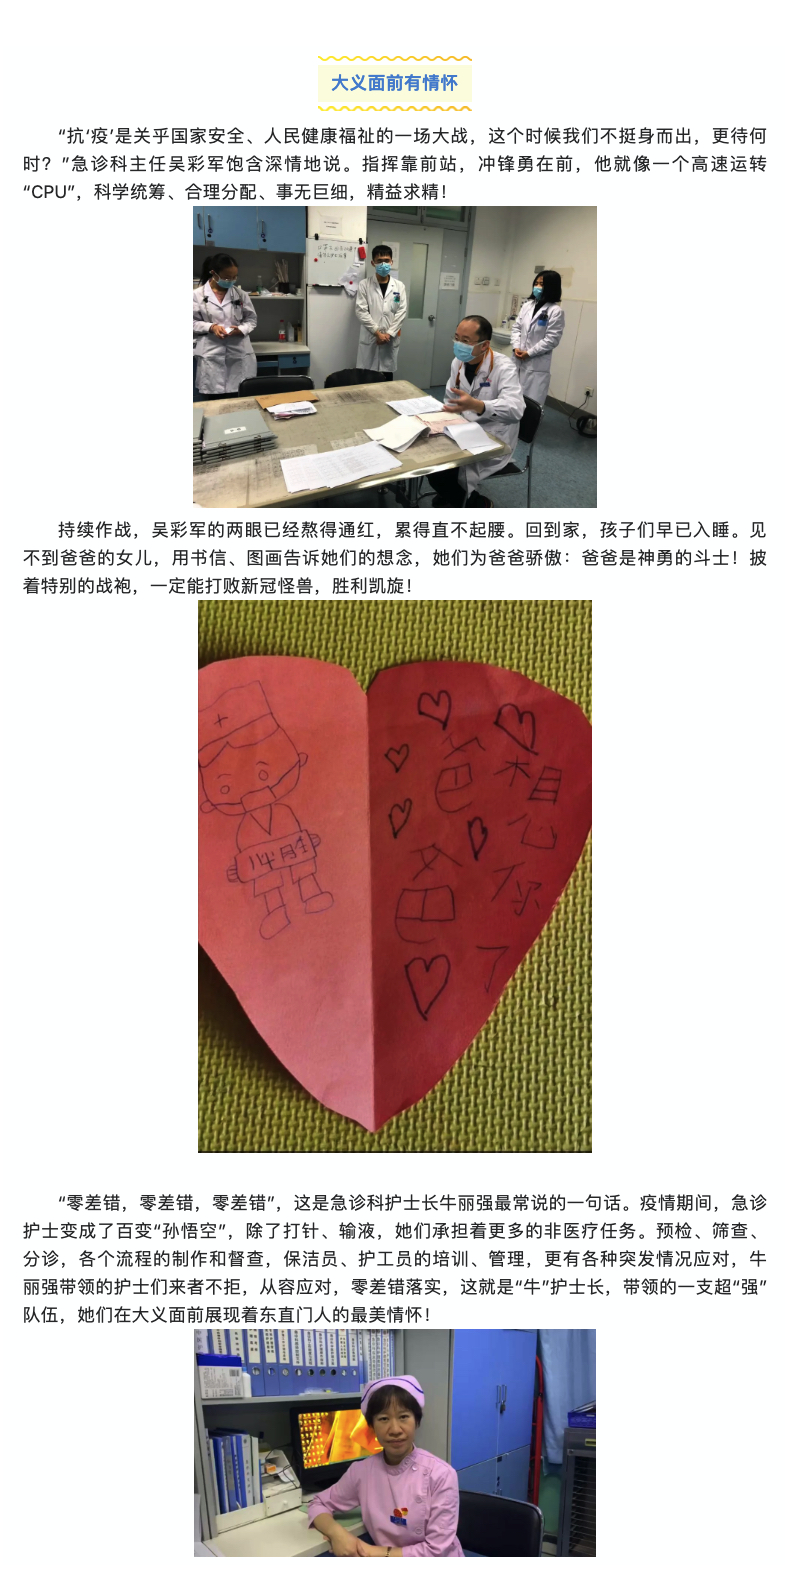 大义面前有情怀
“抗‘疫’是关乎国家安全、人民健康福祉的一场大战，这个时候我们不挺身而出，更待何
时？”急诊科主任吴彩军饱含深情地说。指挥靠前站，冲锋勇在前，他就像一个高速运转
“CPU”，科学统筹、合理分配、事无巨细，精益求精！
持续作战，吴彩军的两眼已经熬得通红，累得直不起腰。回到家，孩子们早已入睡。见
不到爸爸的女儿，用书信、图画告诉她们的想念，她们为爸爸骄傲：爸爸是神勇的斗士！披
着特别的战袍，一定能打败新冠怪兽，胜利凯旋！
爸爸
想你了
“零差错，零差错，零差错”，这是急诊科护士长牛丽强最常说的一句话。疫情期间，急诊
护士变成了百变“孙悟空”，除了打针、输液，她们承担着更多的非医疗任务。预检、筛查、
分诊，各个流程的制作和督查，保洁员、护工员的培训、管理，更有各种突发情况应对，牛
丽强带领的护士们来者不拒，从容应对，零差错落实，这就是“牛”护士长，带领的一支超“强”
队伍，她们在大义面前展现着东直门人的最美情怀！